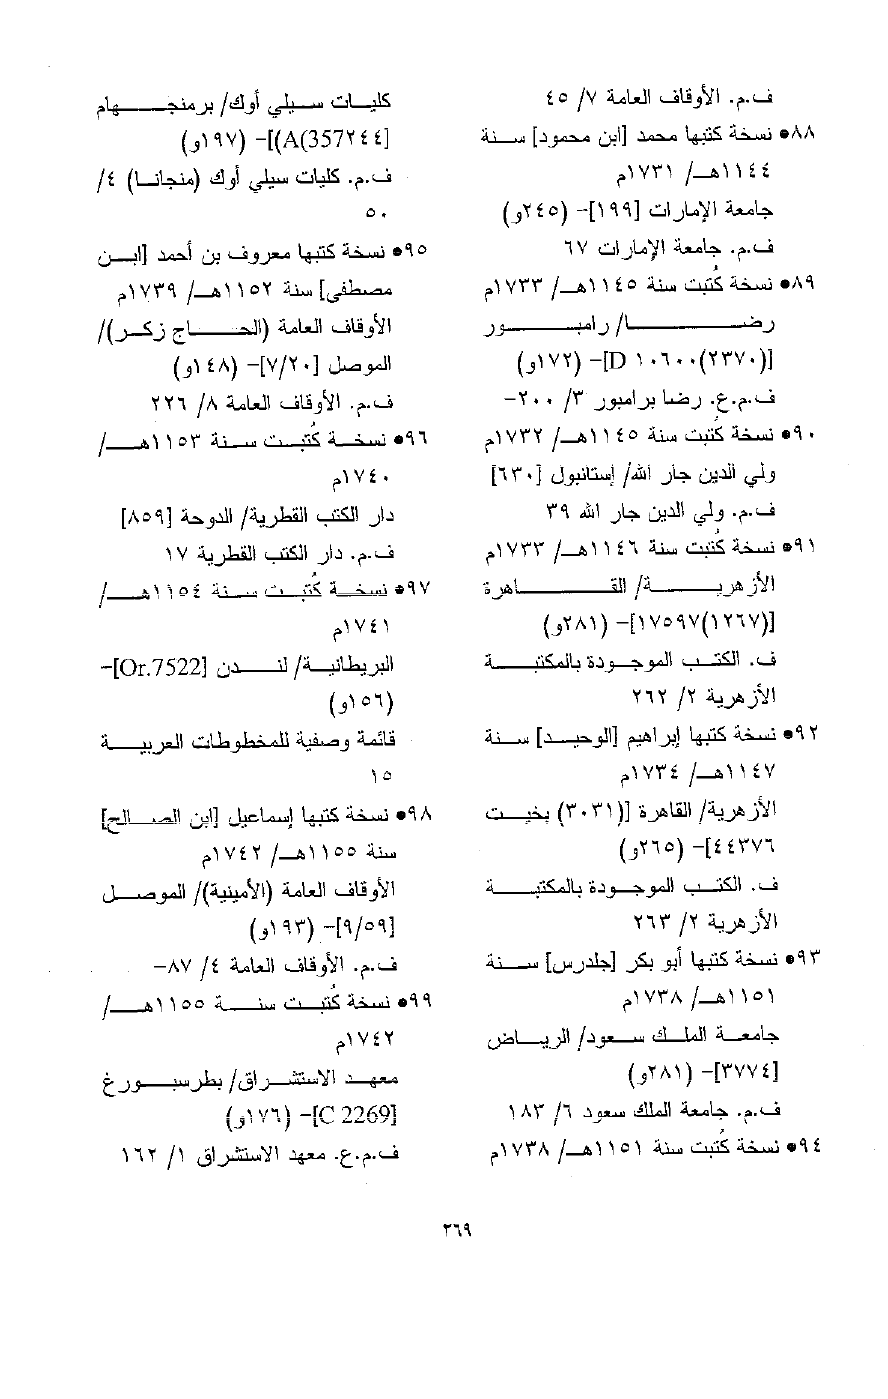 ف.م. الأوقاف العامة ٧/ ٤٥
٨٨• نسخة كتبها محمد [ابن محمود] سنة
١١٤٤هـ/ ١٧٣١م
جامعة الإمارات [١٩٩]- (٢٤٥و)
ف.م. جامعة الإمارات ٦٧
٨٩• نسخة كُتبت سنة ١١٤٥هـ/ ١٧٣٣م
رضا/ رامبور
[(٢٣٧٠)١٠٦٠٠ D]- (١٧٢و)
ف.م.ع. رضا برامبور ٣/ ٢٠٠-
٩٠• نسخة كُتبت سنة ١١٤٥هـ/ ١٧٣٢م
ولي الدين جار الله/ إستانبول [٦٣٠]
ف.م. ولي الدين جار الله ٣٩
٩١• نسخة كُتبت سنة ١١٤٦هـ/ ١٧٣٣م
الأزهرية/ القاهرة
[(١٢٦٧)١٧٥٩٧]- (٢٨١و)
ف. الكتب الموجودة بالمكتبة
الأزهرية ٢/ ٢٦٢
٩٢• نسخة كتبها إبراهيم [الوحيد] سنة
١١٤٧هـ/ ١٧٣٤م
الأزهرية/ القاهرة [(٣٠٣١) بخيت
٤٤٣٧٦]- (٢٦٥و)
ف. الكتب الموجودة بالمكتبة
الأزهرية ٢/ ٢٦٣
٩٣• نسخة كتبها أبو بكر [جلدرس] سنة
١١٥١هـ/ ١٧٣٨م
جامعة الملك سعود/ الرياض
[٣٧٧٤]- (٢٨١و)
ف.م. جامعة الملك سعود ٦/ ١٨٣
٩٤• نسخة كُتبت سنة ١١٥١هـ/ ١٧٣٨م
كليات سيلي أوك/ برمنجهام
[A(357٢٤٤)]- (١٩٧و)
ف.م. كليات سيلي أوك (منجانا) ٤/
٥٠
٩٥• نسخة كتبها معروف بن أحمد [ابن
مصطفى] سنة ١١٥٢هـ/ ١٧٣٩م
الأوقاف العامة (الحاج زكر)/
الموصل [٧/٢٠]- (١٤٨و)
ف.م. الأوقاف العامة ٨/ ٢٢٦
٩٦• نسخة كُتبت سنة ١١٥٣هـ/
١٧٤٠م
دار الكتب القطرية/ الدوحة [٨٥٩]
ف.م. دار الكتب القطرية ١٧
٩٧• نسخة كُتبت سنة ١١٥٤هـ/
١٧٤١م
البريطانية/ لندن [Or.7522]-
(١٥٦و)
قائمة وصفية للمخطوطات العربية
١٥
٩٨• نسخة كتبها إسماعيل [ابن الصالح]
سنة ١١٥٥هـ/ ١٧٤٢م
الأوقاف العامة (الأمينية)/ الموصل
[٩/٥٩]- (١٩٣و)
ف.م. الأوقاف العامة ٤/ ٨٧-
٩٩• نسخة كُتبت سنة ١١٥٥هـ/
١٧٤٢م
معهد الاستشراق/ بطرسبورغ
[C 2269]- (١٧٦و)
ف.م.ع. معهد الاستشراق ١/ ١٦٢
٣٦٩